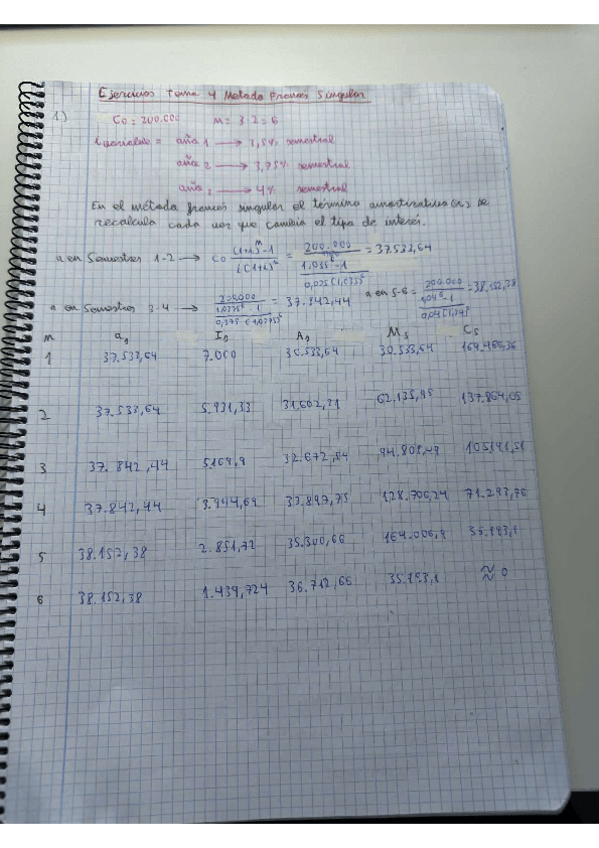 Ejercicios Tema 4 Metodo Frances Singular
1) Co = 200.000 M = 3·2 = 6
i variable = año 1 → 3,5% semestral
año 2 → 3,75% semestral
año 3 → 4% semestral
En el método frances singular el término amortizativo (a) se
recalcula cada vez que cambia el tipo de interés.
a en Semestres 1-2 → Co = 200.000 = 37.533,64
a en Semestres 3-4 → 200.000 = 37.842,44 a en 5-6 = 200.000 = 38.152,38
m as Is As Ms Cs
1 37.533,64 7.000 30.533,64 30.533,64 169.466,36
2 37.533,64 5.931,33 31.602,31 62.135,95 137.864,05
3 37.842,44 5.169,9 32.672,54 94.808,49
4 37.842,44 3.944,69 33.897,75 128.706,24 71.293,76
5 38.152,38 2.851,72 35.300,66 164.006,9
6 38.152,38 1.439,724 36.712,66 ≈ 0